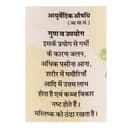 आयुर्वेदिक औषधि
(आ.सा.सं.)
गुण व उपयोग
इसके प्रयोग से गर्मी
के कारण जलन,
अधिक पसीना आना,
शरीर में घमौरियाँ
आदि में उत्तम लाभ
होता है एवं कब्ज विकार
नष्ट होते हैं।
मस्तिष्क को ठंडा रखता है।